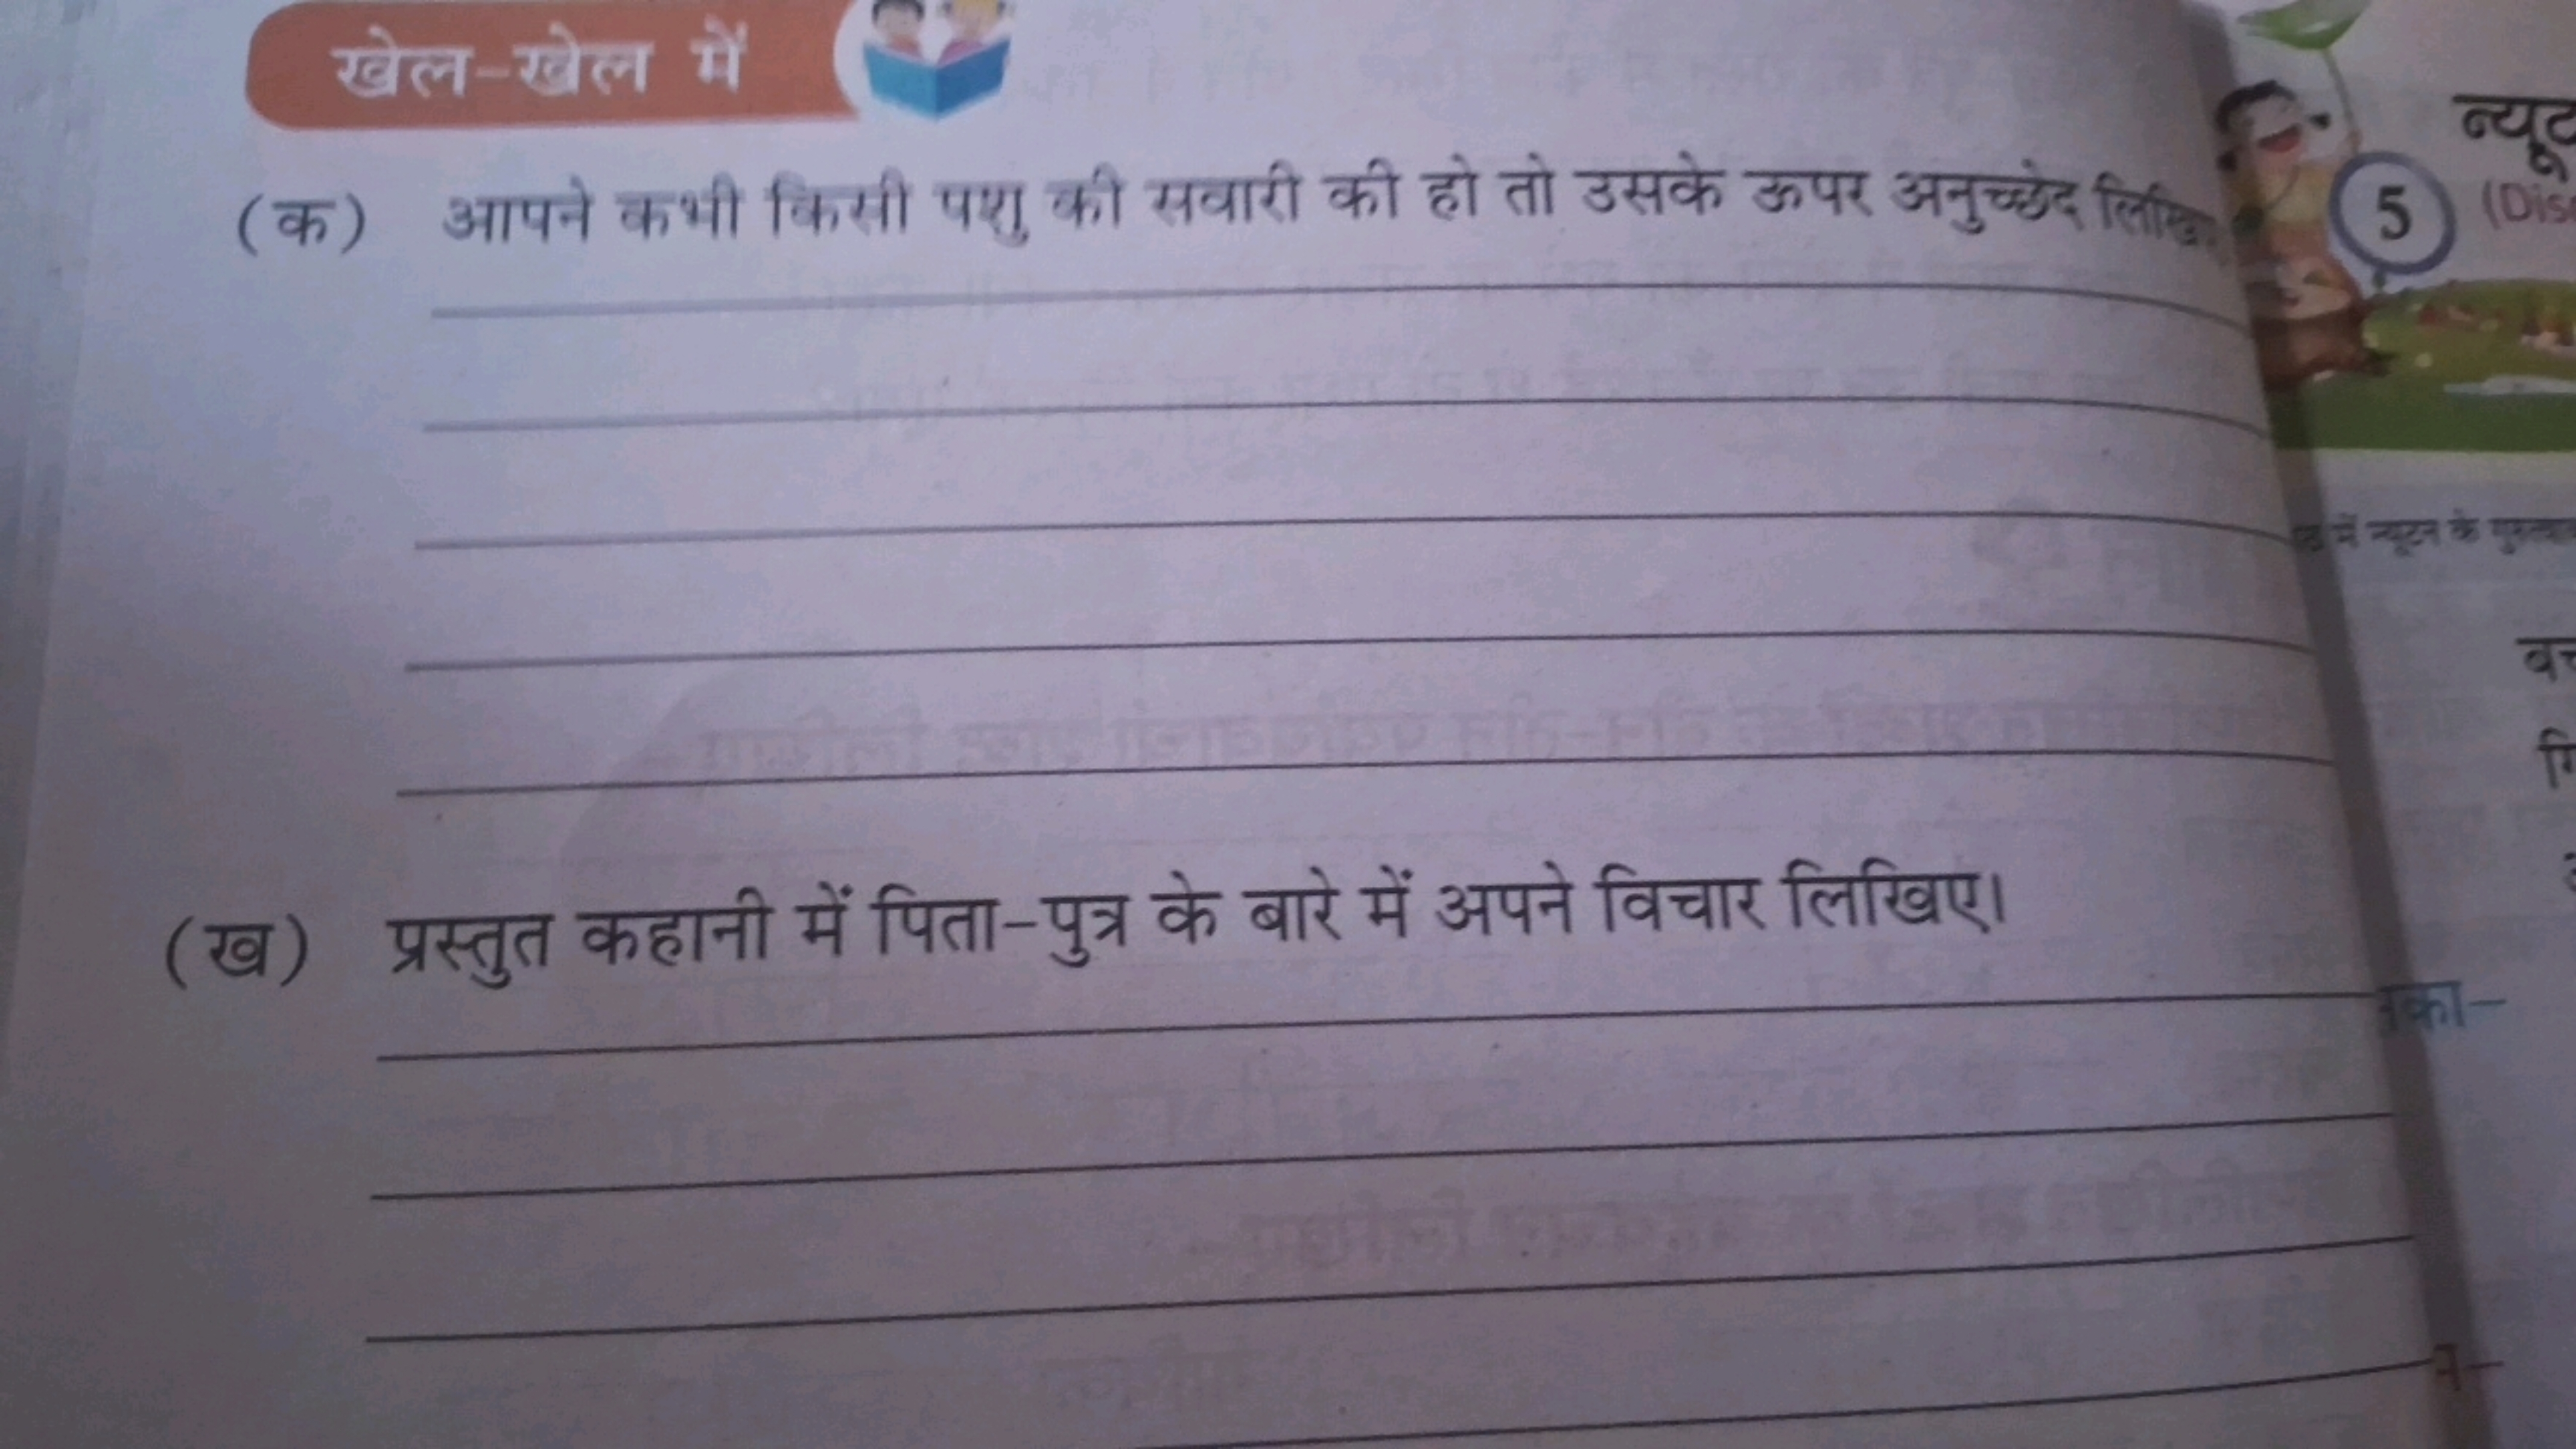 खेल-खेल में
(क) आपने कभी किसी पशु की सवारी की हो तो उसके ऊपर अनुच्छेद
(ख) प्रस्तुत कहानी में पिता-पुत्र के बारे में अपने विचार लिखिए।
5
(Dis
में न्यूटन के